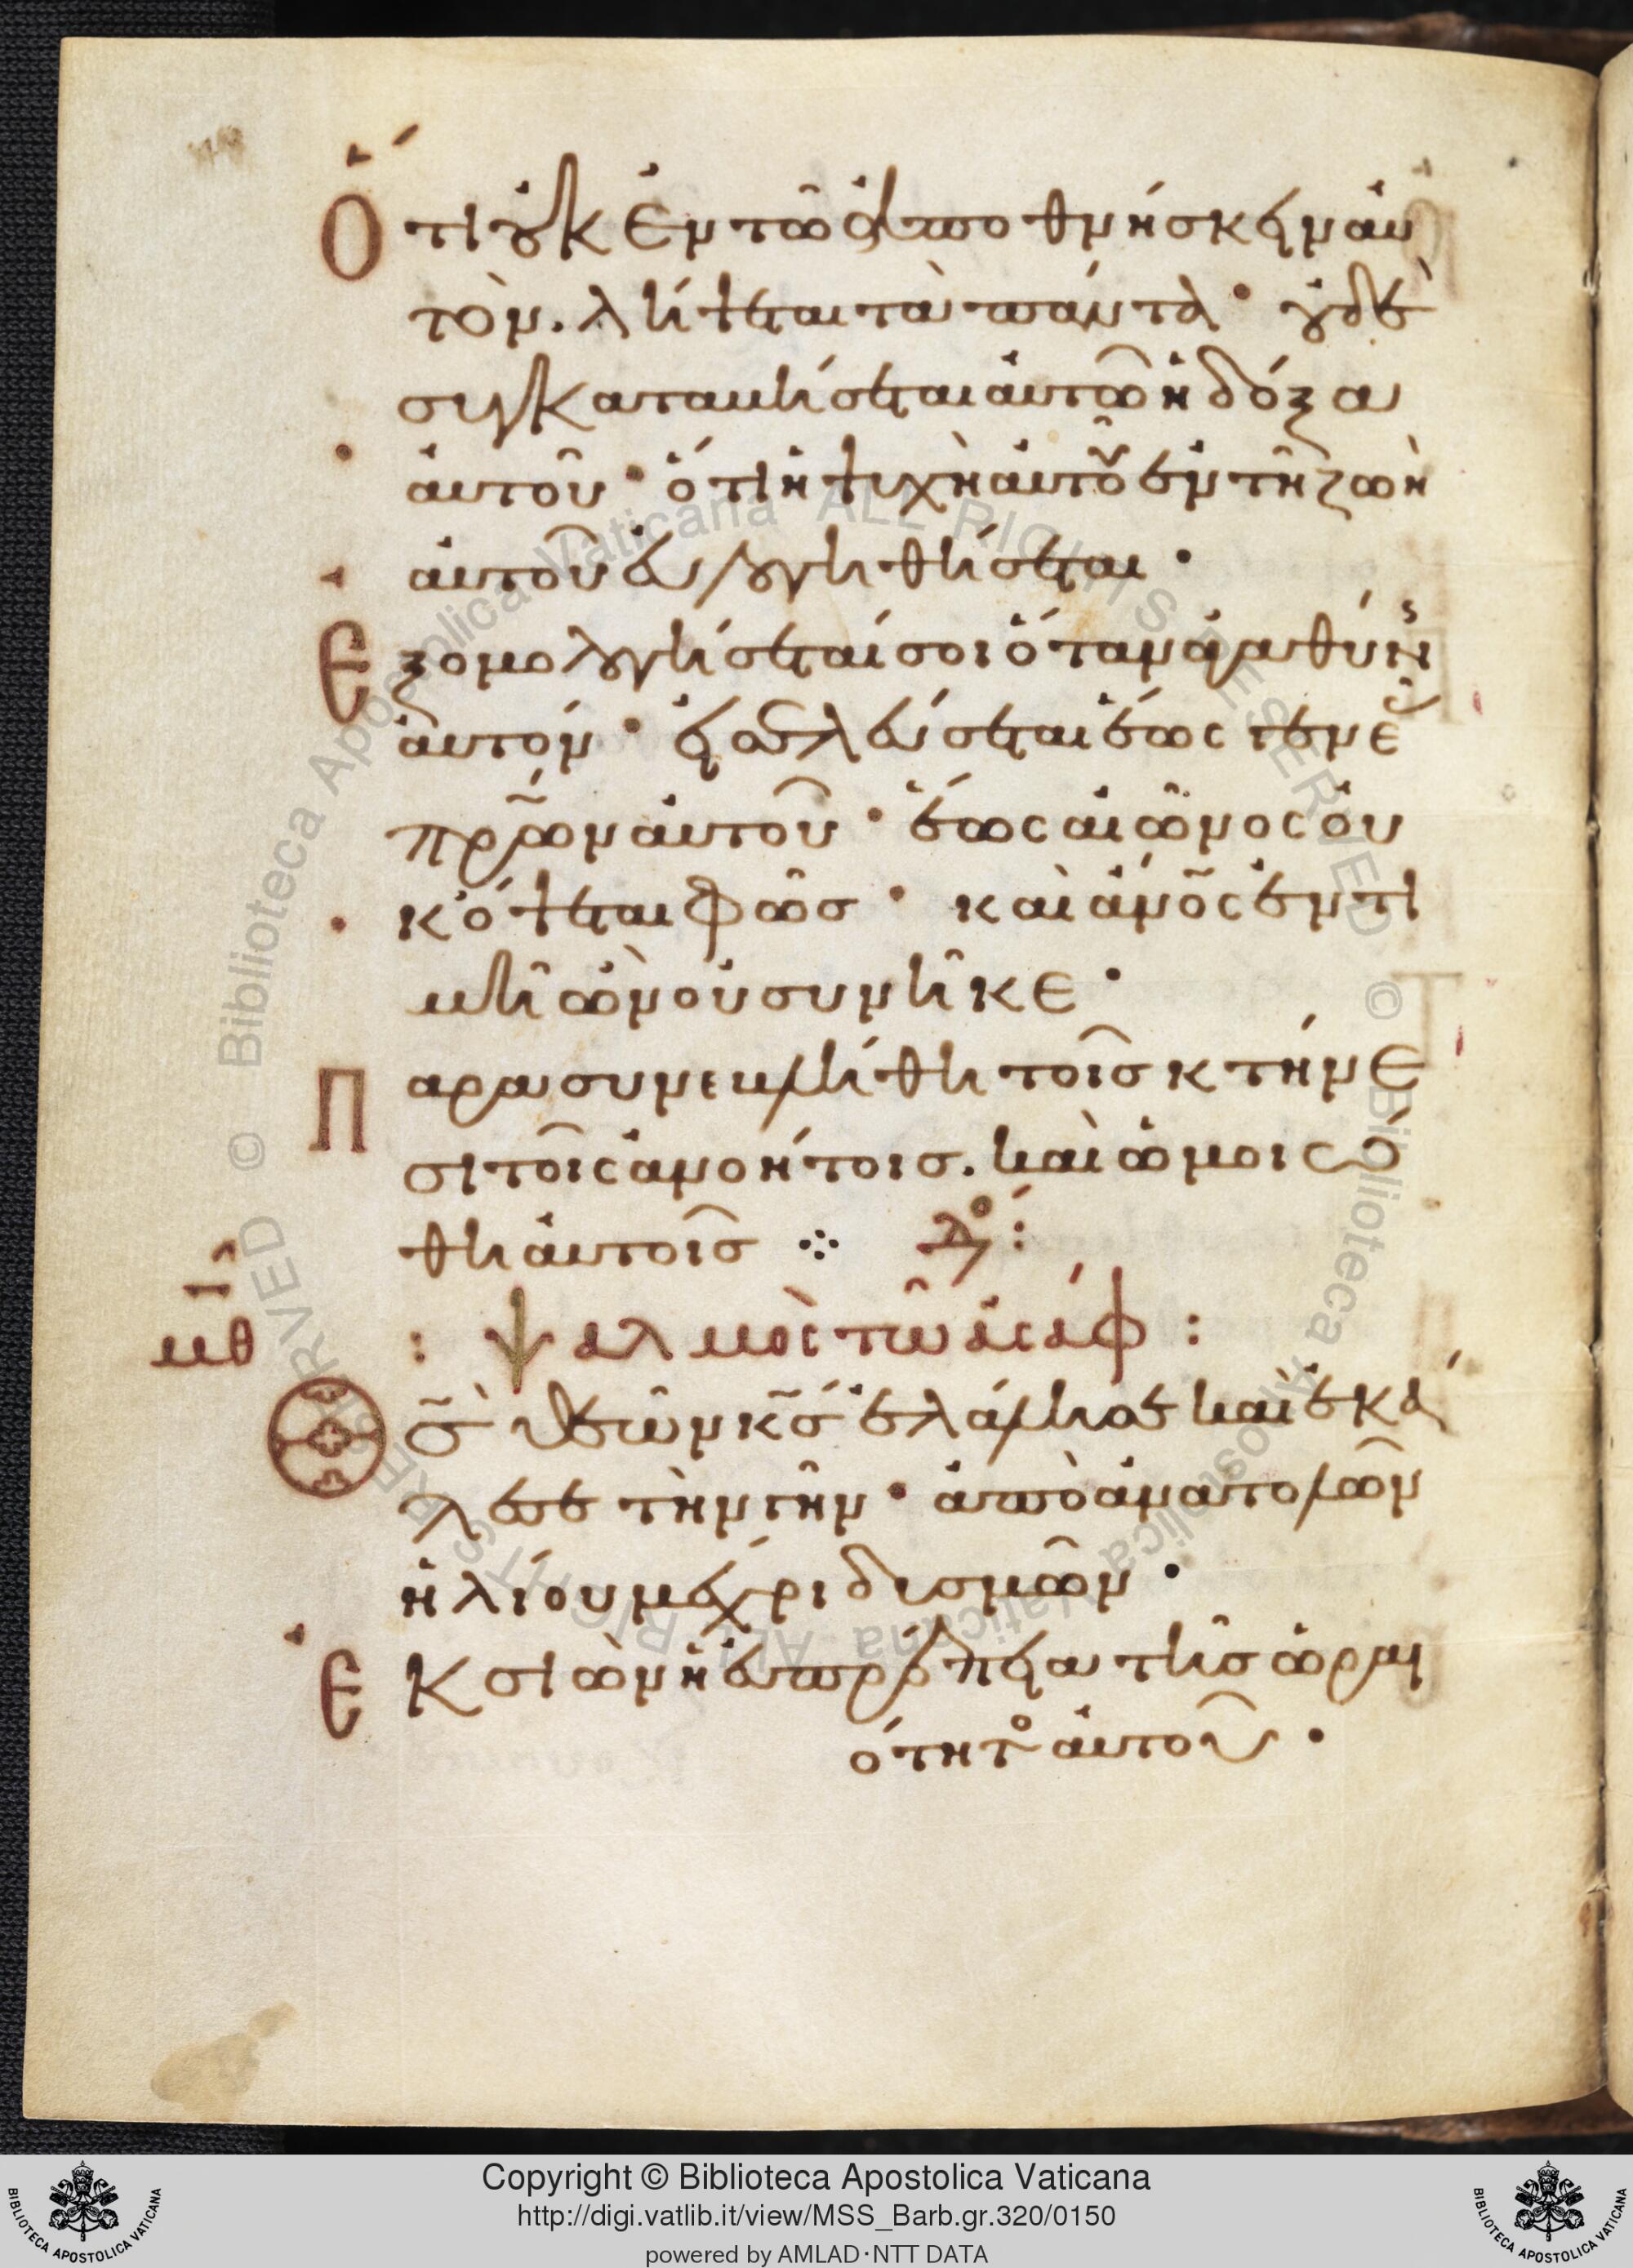 Ὅτι οὐκ ἐν τῶ ἀποθνήσκειν αὐ
τὸν. λήψεται τὰ πάντα· οὐδὲ
συγκαταβήσεται αὐτῶ ἡ δόξα
αὐτοῦ· ὅτι ἡ ψυχὴ αὐτοῦ ἐν τῆ ζωὴ
αὐτοῦ εὐλογηθήσεται·
Ἐξομολογήσεταί σοι ὅταν ἀγαθύνης
αὐτόν· εἰσελεύσεται ἕως γενεᾶς
πρῶν αὐτοῦ· ἕως αἰῶνος οὐ
κ ὄψεται φῶσ· καὶ ἀνος ἐν τι
μῆ ὢν οὐ συνῆκε·
Παρασυνεβλήθη τοῖσ κτήνε
σι τοῖς ἀνοήτοισ. καὶ ὡμοιώ
θη αὐτοῖσ ⁘
μθ : ψαλμὸς τῶ ἀσάφ :
Θσ θεῶν κσ ἐλάλησε καὶ ἐκά
λεσε τὴν γῆν· ἀπὸ ἀνατολῶν
ἡλίου μέχρι δυσμῶν·
Ἐκ σιὼν ἡ εὐπρέπεια τῆσ ὡραι
ότητο αὐτοῦ·
© Biblioteca Apostolica Vaticana ALL RIGHTS RESERVED
Copyright © Biblioteca Apostolica Vaticana
http://digi.vatlib.it/view/MSS_Barb.gr.320/0150
powered by AMLAD·NTT DATA
BIBLIOTECA APOSTOLICA VATICANA
BIBLIOTECA APOSTOLICA VATICANA